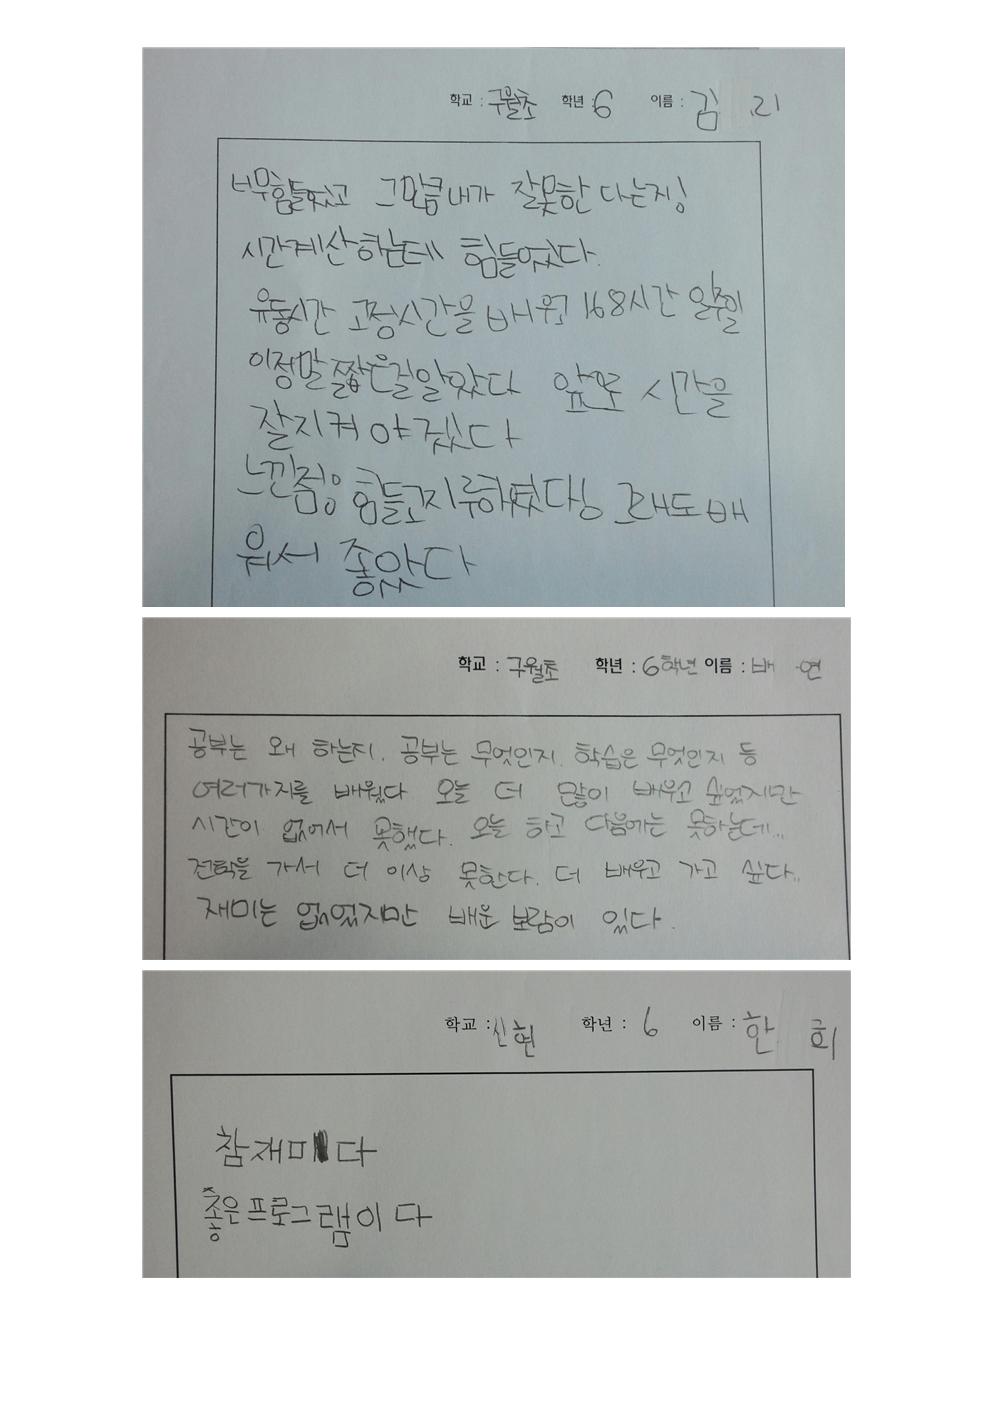 학교 : 구월초 학년 : 6 이름 : 김 리
너무힘들었고 그만큼내가 잘못한 다는지!
시간계산하는데 힘들었다.
유동시간 고정시간을 배워 168시간 일주일
이정말짧은걸알았다 앞으로 시간을
잘지켜야겠다
느낀점은 힘들고지루하였다! 그래도배
워서 좋았다
학교 : 구월초 학년 : 6학년 이름 : 배 연
공부는 왜 하는지. 공부는 무엇인지. 학습은 무엇인지 등
여러가지를 배웠다 오늘 더 많이 배우고 싶었지만
시간이 없어서 못했다. 오늘 하고 다음에는 못하는데...
전학을 가서 더 이상 못한다. 더 배우고 가고 싶다..
재미는 없었지만 배운 보람이 있다.
학교 : 신현 학년 : 6 이름 : 한 희
참재미다
좋은프로그램이다